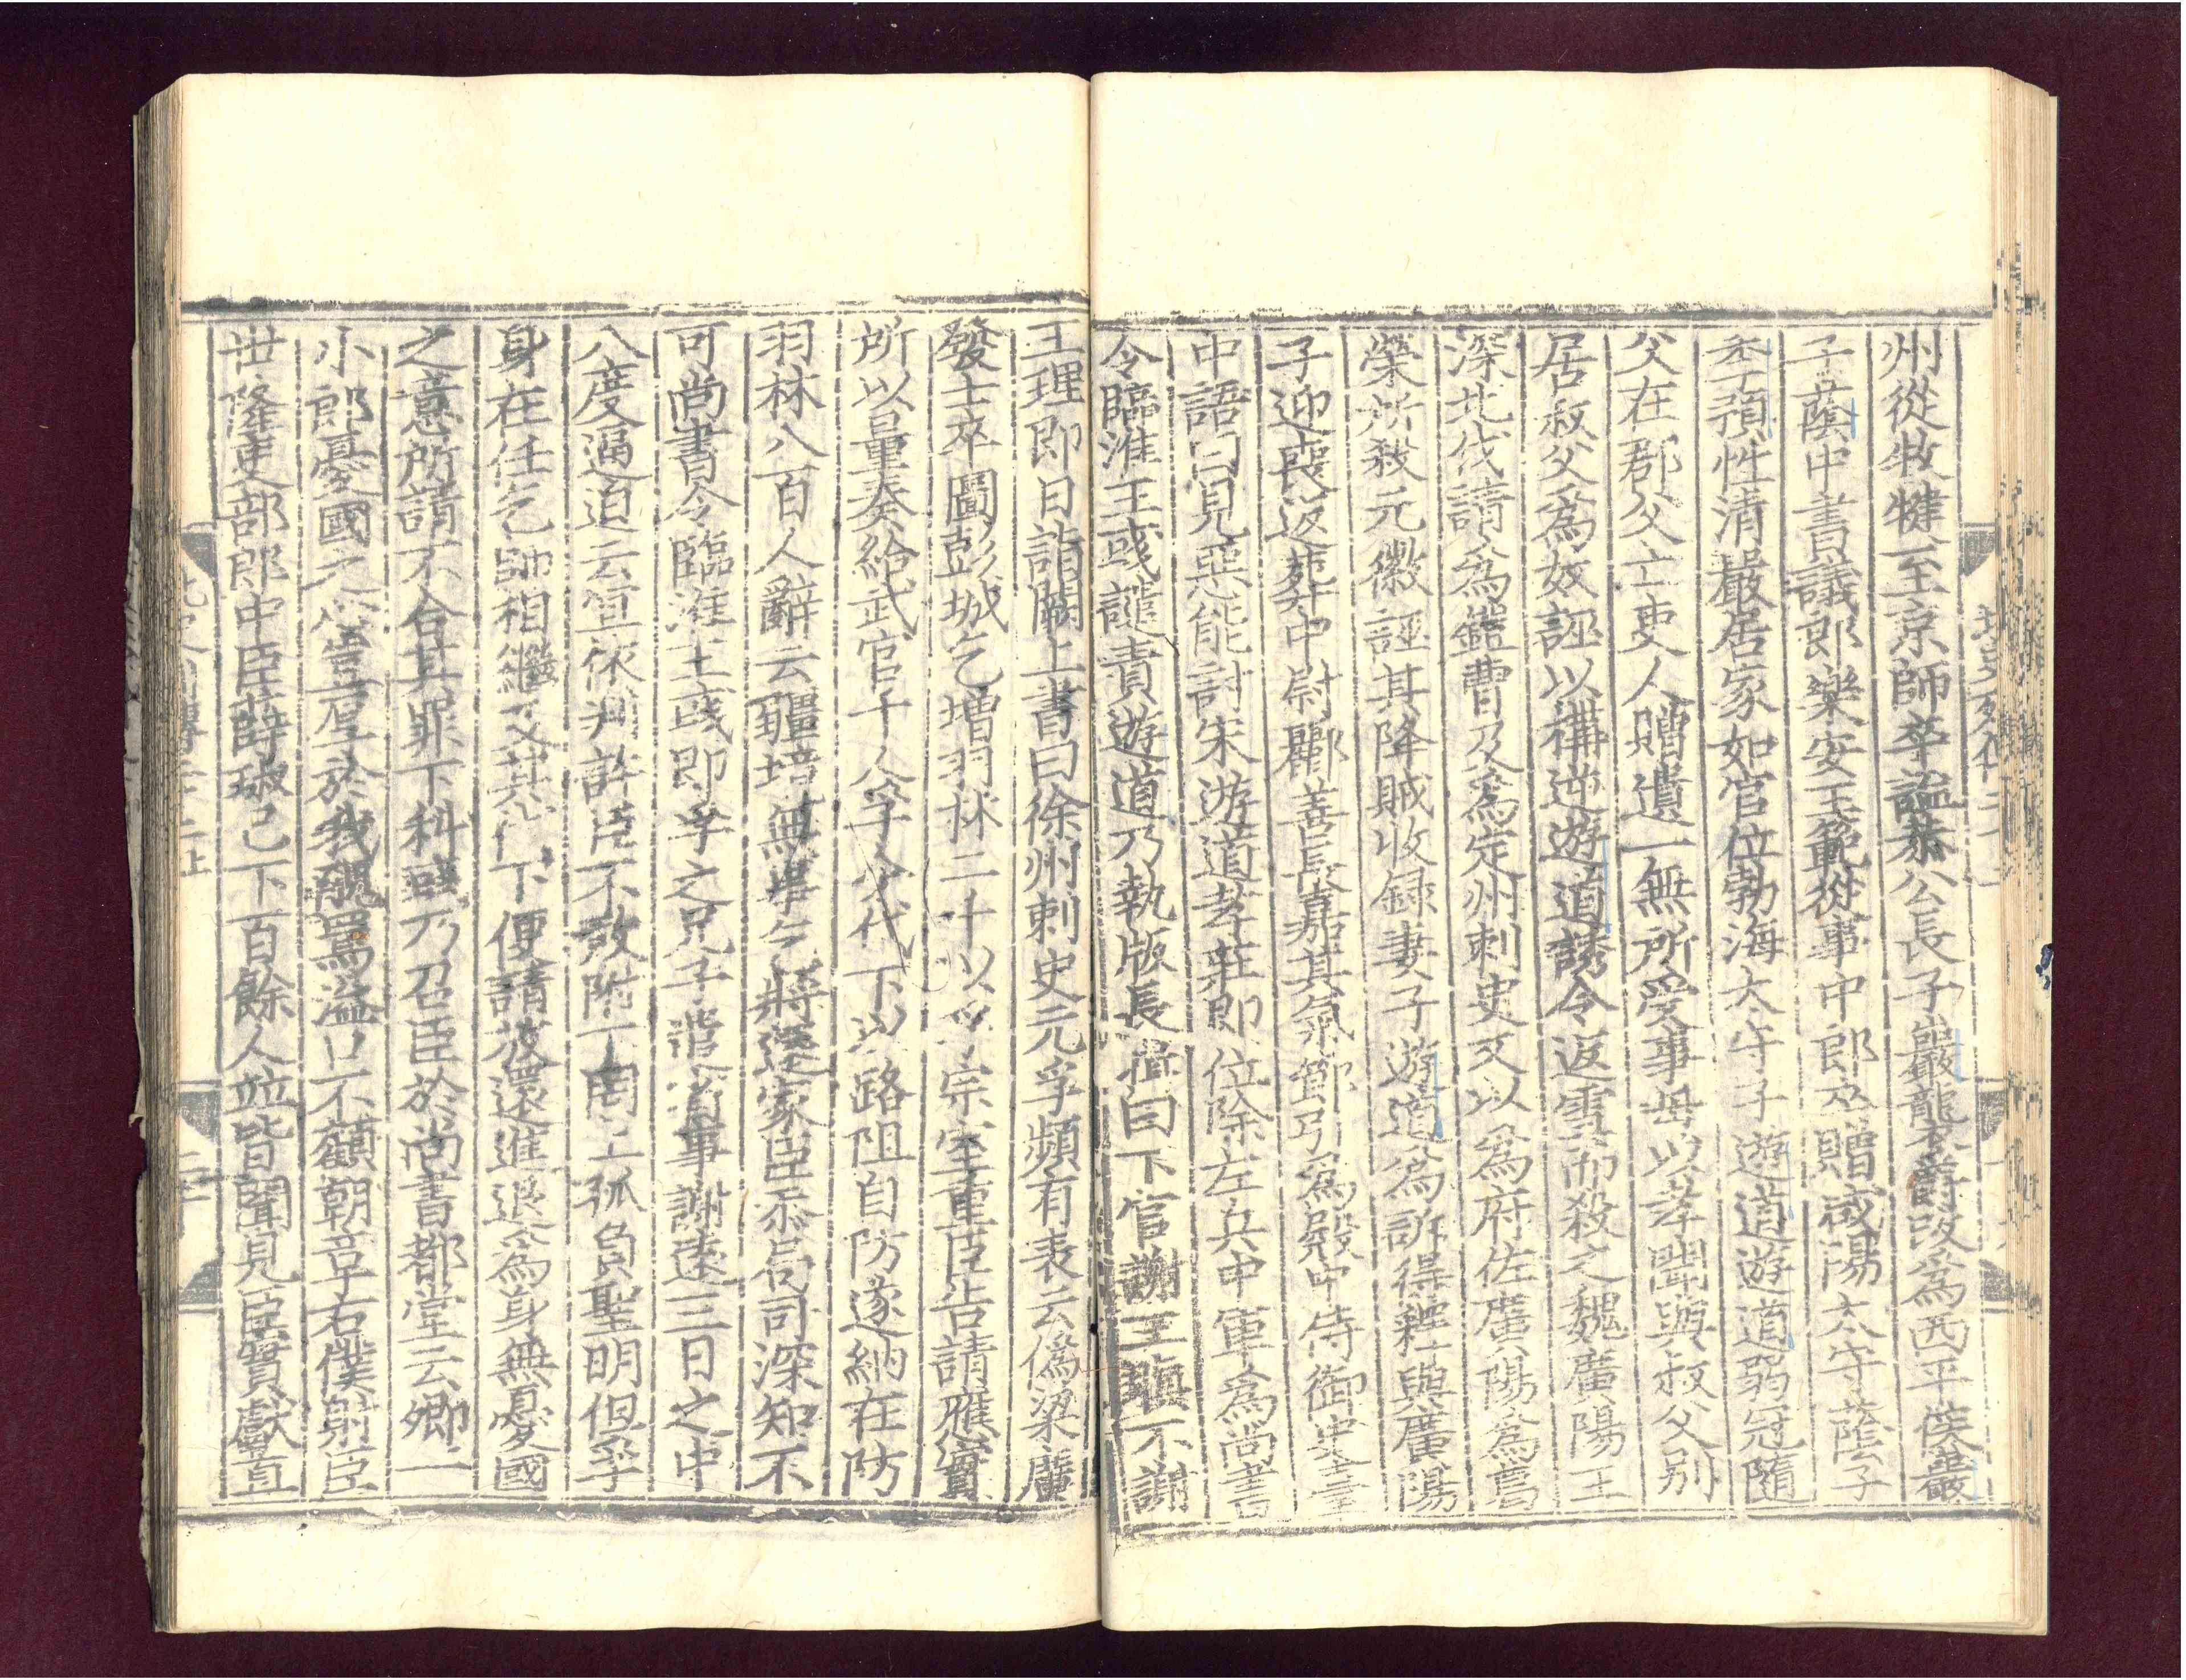 州從牧犍至京師卒謚恭公長子巖龍襲爵改爲西平侯巖
子蔭中書議郎樂安王範從事中郎卒贈咸陽太守蔭子
季預性清嚴居家如官位勃海太守子遊道遊道弱冠隨
父在郡父亡吏人贈遺一無所受事母以孝聞與叔父別
居叔父爲奴誣以構逆遊道誘令返雪而殺之魏廣陽王
深北伐請爲鎧曹及爲定州刺史又以爲府佐廣陽爲葛
榮所殺元徽誣其降賊收録妻子遊道爲訴得釋與廣陽
子迎喪返葬中尉酈善長嘉其氣節引爲殿中侍御史臺
中語曰見惡能討宋游道孝莊即位除左兵中軍爲尚書
令臨淮王彧譴責遊道乃執版長揖曰下官謝王瞋不謝
王理即日詣闕上書曰徐州刺史元孚頻有表云僞梁廣
發士卒圖彭城乞增羽林二千以孚宗室重臣告請應實
所以量奏給武官千人孚今代下以路阻自防遂納在防
羽林八百人辭云疆埸無事乞將還家臣忝局司深知不
可尚書令臨淮王彧即孚之兄子遣省事謝遠三日之中
八度逼迫云宜依判許臣不敢附下罔上孤負聖明但孚
身在任乞師相繼及其代下便請放還進退爲身無憂國
之意所請不合其罪下科彧乃召臣於尚書都堂云卿一
小郎憂國之心豈厚於我醜罵溢口不顧朝章右僕射臣
世隆吏部郎中臣薛琡已下百餘人竝皆聞見臣實獻直